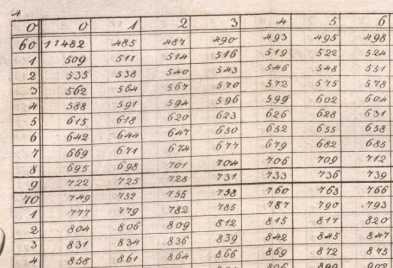 0 0 1 2 3 4 5 6
60 11482 485 487 490 493 495 498
1 509 511 514 516 519 522 524
2 535 538 540 543 546 548 551
3 562 564 567 570 572 575 578
4 588 591 594 596 599 602 604
5 615 618 620 623 626 628 631
6 642 644 647 650 652 655 658
7 669 671 674 677 679 682 685
8 695 698 701 704 706 709 712
9 722 725 728 731 733 736 739
70 749 752 755 758 760 763 766
1 777 779 782 785 787 790 793
2 804 806 809 812 815 817 820
3 831 834 836 839 842 845 847
4 858 861 864 866 869 872 875